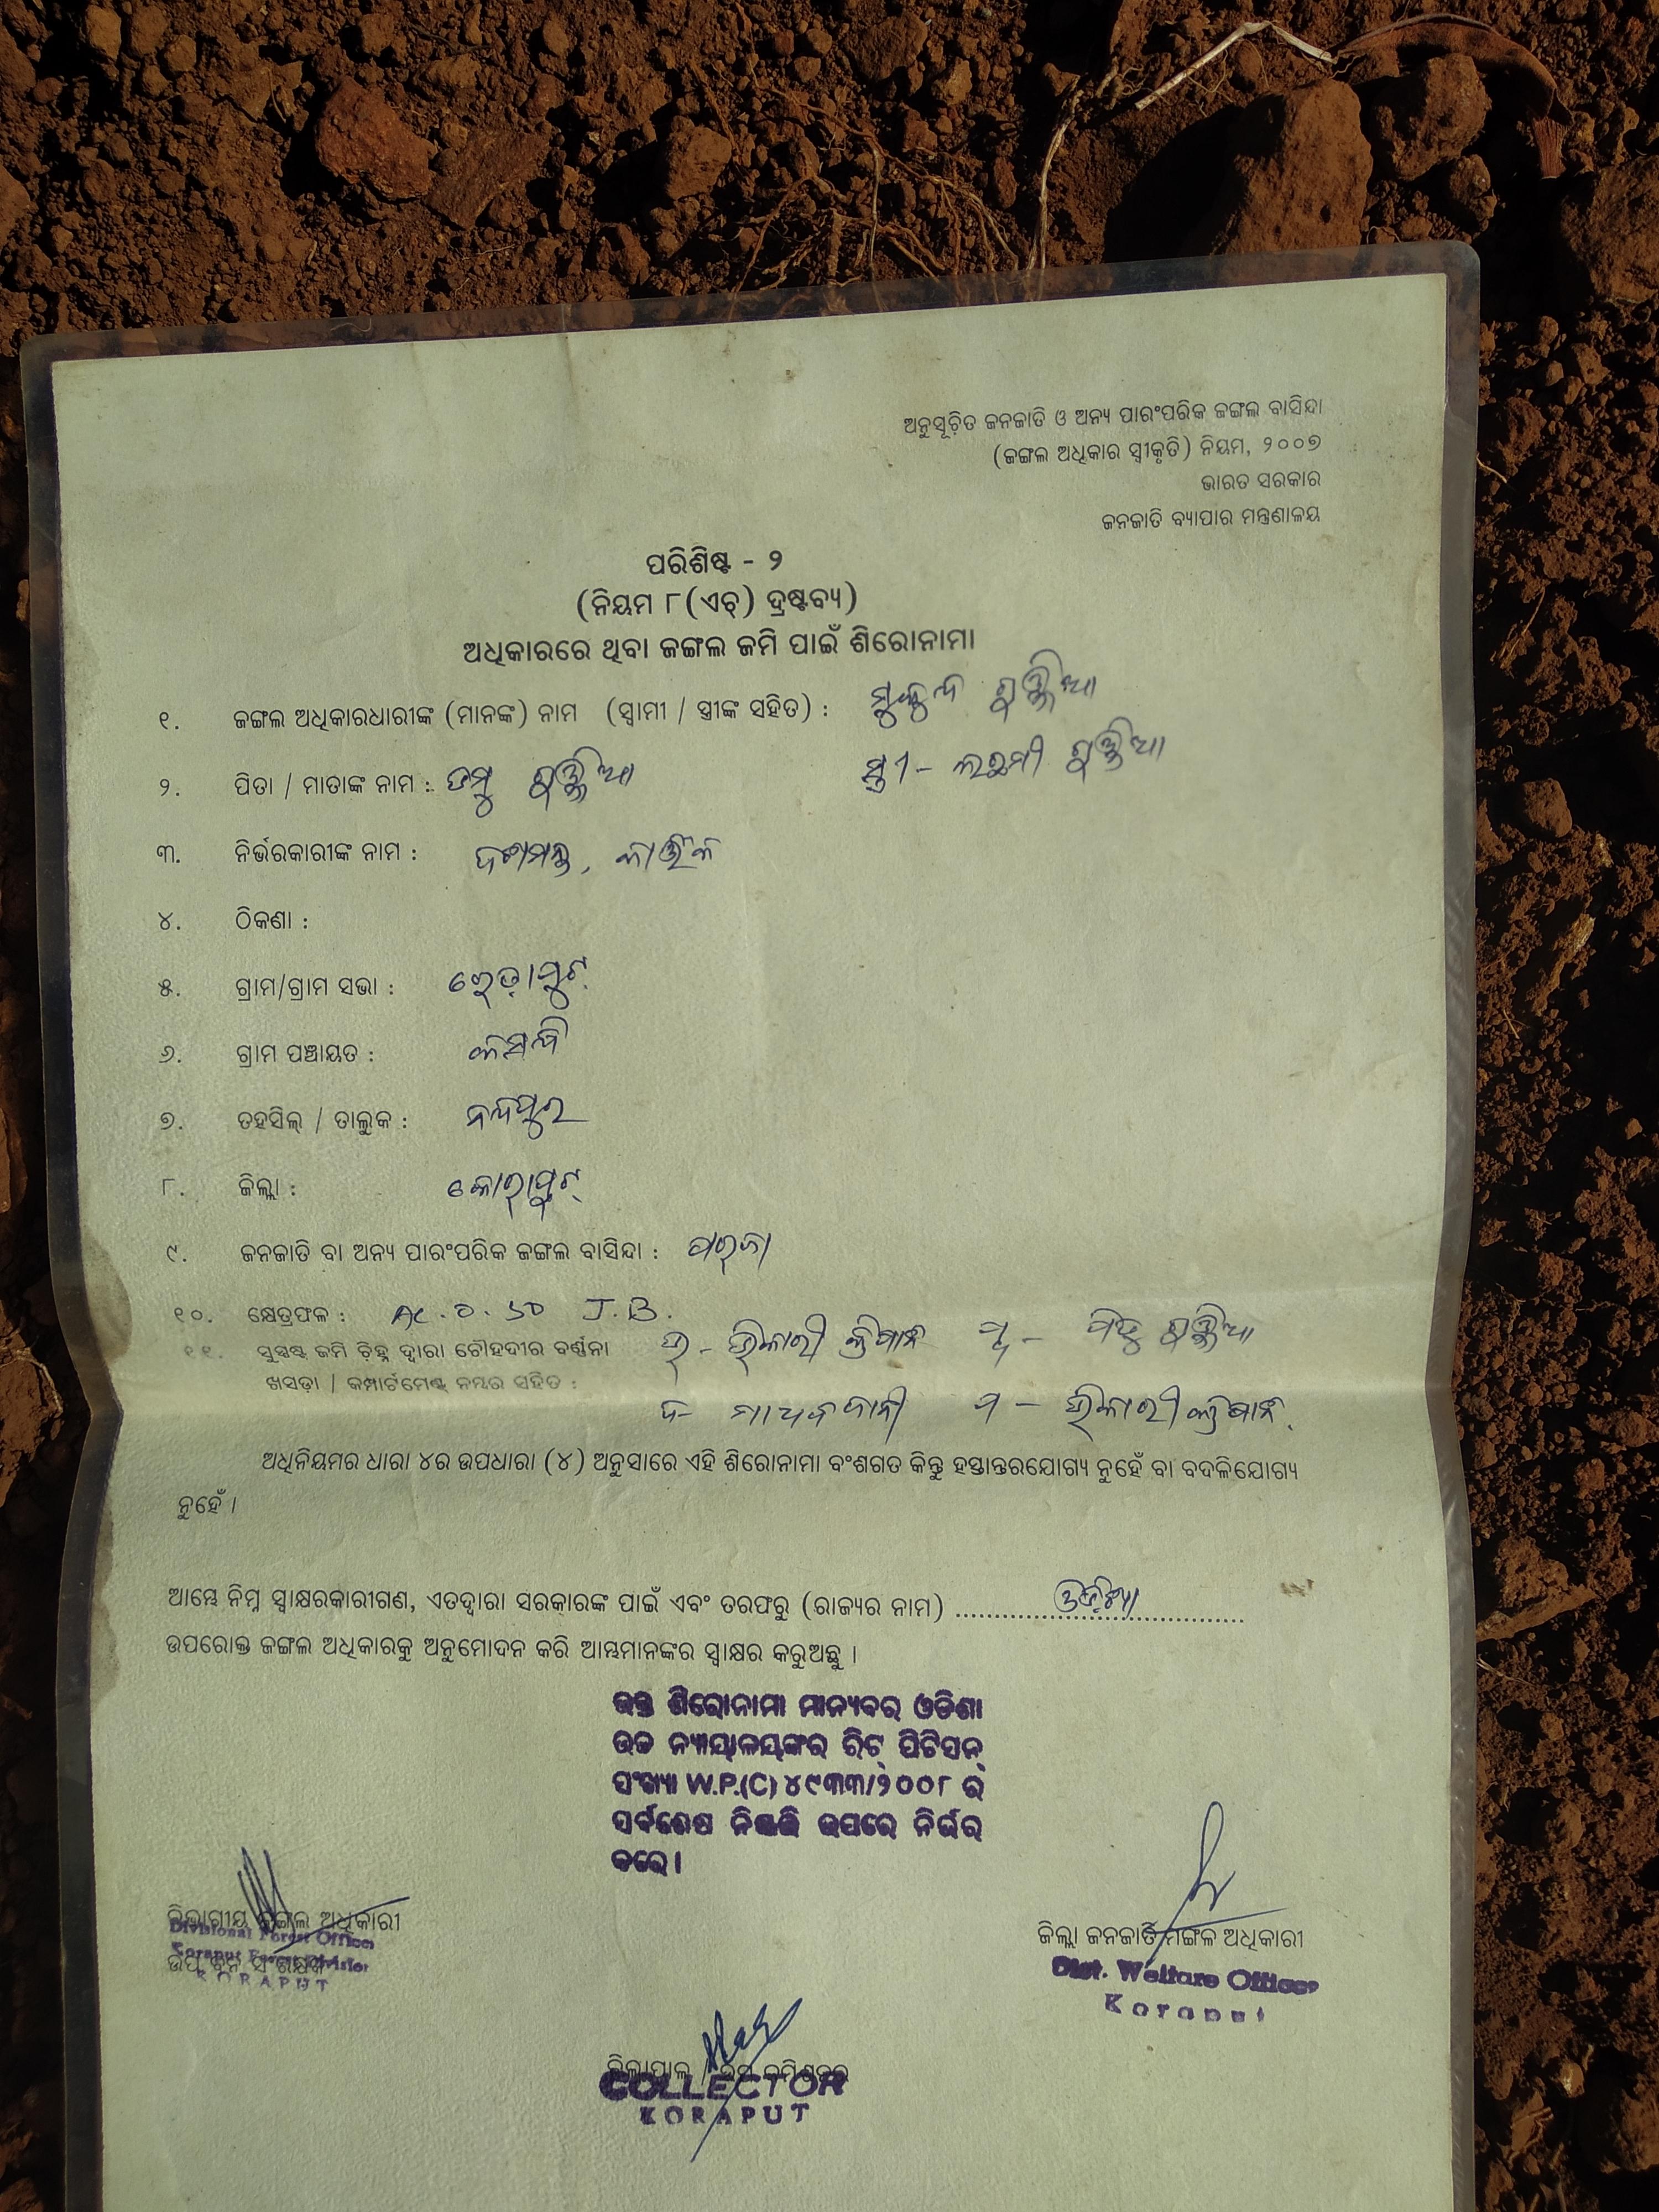 ଅନୁସୂଚିତ ଜନଜାତି ଓ ଅନ୍ୟ ପାରଂପରିକ ଜଙ୍ଗଲ ବାସିନ୍ଦା
(ଜଙ୍ଗଲ ଅଧିକାର ସ୍ୱୀକୃତି) ନିୟମ, ୨୦୦୭
ଭାରତ ସରକାର
ଜନଜାତି ବ୍ୟାପାର ମନ୍ତ୍ରଣାଳୟ
ପରିଶିଷ୍ଟ - ୨
(ନିୟମ ୮(ଏଚ୍) ଦ୍ରଷ୍ଟବ୍ୟ)
ଅଧିକାରରେ ଥିବା ଜଙ୍ଗଲ ଜମି ପାଇଁ ଶିରୋନାମା
୧. ଜଙ୍ଗଲ ଅଧିକାରଧାରୀଙ୍କ (ମାନଙ୍କ) ନାମ (ସ୍ୱାମୀ / ସ୍ତ୍ରୀଙ୍କ ସହିତ) : ମୁକୁନ୍ଦ
ସ୍ତ୍ରୀ - ଲଛମୀ
୨. ପିତା / ମାତାଙ୍କ ନାମ :
୩. ନିର୍ଭରକାରୀଙ୍କ ନାମ : ଦଶମନ୍ତ, କାର୍ତ୍ତିକ
୪. ଠିକଣା :
୫. ଗ୍ରାମ/ଗ୍ରାମ ସଭା :
୬. ଗ୍ରାମ ପଞ୍ଚାୟତ :
୭. ତହସିଲ୍ / ତାଲୁକ : ନନ୍ଦପୁର
୮. ଜିଲ୍ଲା : କୋରାପୁଟ୍
୯. ଜନଜାତି ବା ଅନ୍ୟ ପାରଂପରିକ ଜଙ୍ଗଲ ବାସିନ୍ଦା : ପରଜା
୧୦. କ୍ଷେତ୍ରଫଳ : Ac. 0.50 J.B.
୧୧. ସୁସ୍ପଷ୍ଟ ଜମି ଚିହ୍ନ ଦ୍ୱାରା ଚୌହଦୀର ବର୍ଣ୍ଣନା
ଖସଡ଼ା / କମ୍ପାର୍ଟମେଣ୍ଟ ନମ୍ବର ସହିତ :
ଅଧିନିୟମର ଧାରା ୪ର ଉପଧାରା (୪) ଅନୁସାରେ ଏହି ଶିରୋନାମା ବଂଶଗତ କିନ୍ତୁ ହସ୍ତାନ୍ତରଯୋଗ୍ୟ ନୁହେଁ ବା ବଦଳିଯୋଗ୍ୟ
ନୁହେଁ ।
ଆମ୍ଭେ ନିମ୍ନ ସ୍ୱାକ୍ଷରକାରୀଗଣ, ଏତଦ୍ୱାରା ସରକାରଙ୍କ ପାଇଁ ଏବଂ ତରଫରୁ (ରାଜ୍ୟର ନାମ) ଓଡ଼ିଶା
ଉପରୋକ୍ତ ଜଙ୍ଗଲ ଅଧିକାରକୁ ଅନୁମୋଦନ କରି ଆମ୍ଭମାନଙ୍କର ସ୍ୱାକ୍ଷର କରୁଅଛୁ ।
ଉକ୍ତ ଶିରୋନାମା ମାନ୍ୟବର ଓଡିଶା
ଉଚ୍ଚ ନ୍ୟାୟାଳୟଙ୍କର ରିଟ୍ ପିଟିସନ୍
ସଂଖ୍ୟା W.P.(C) ୪୯୩୩/୨୦୦୮ ର
ସର୍ବଶେଷ ନିଷ୍ପତ୍ତି ଉପରେ ନିର୍ଭର
କରେ ।
ବିଭାଗୀୟ ଜଙ୍ଗଲ ଅଧିକାରୀ
Divisional Forest Officer
Koraput Forest Division
ଉପ ବନ ସଂରକ୍ଷକ
KORAPUT
ଜିଲ୍ଲା ଜନଜାତି ମଙ୍ଗଳ ଅଧିକାରୀ
Dist. Welfare Officer
Koraput
ଜିଲ୍ଲାପାଳ /
COLLECTOR
KORAPUT